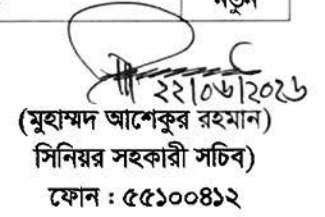 নতুন
২২/০৬/২০২৬
(মুহাম্মদ আশেকুর রহমান)
সিনিয়র সহকারী সচিব)
ফোন : ৫৫১০০৪১২